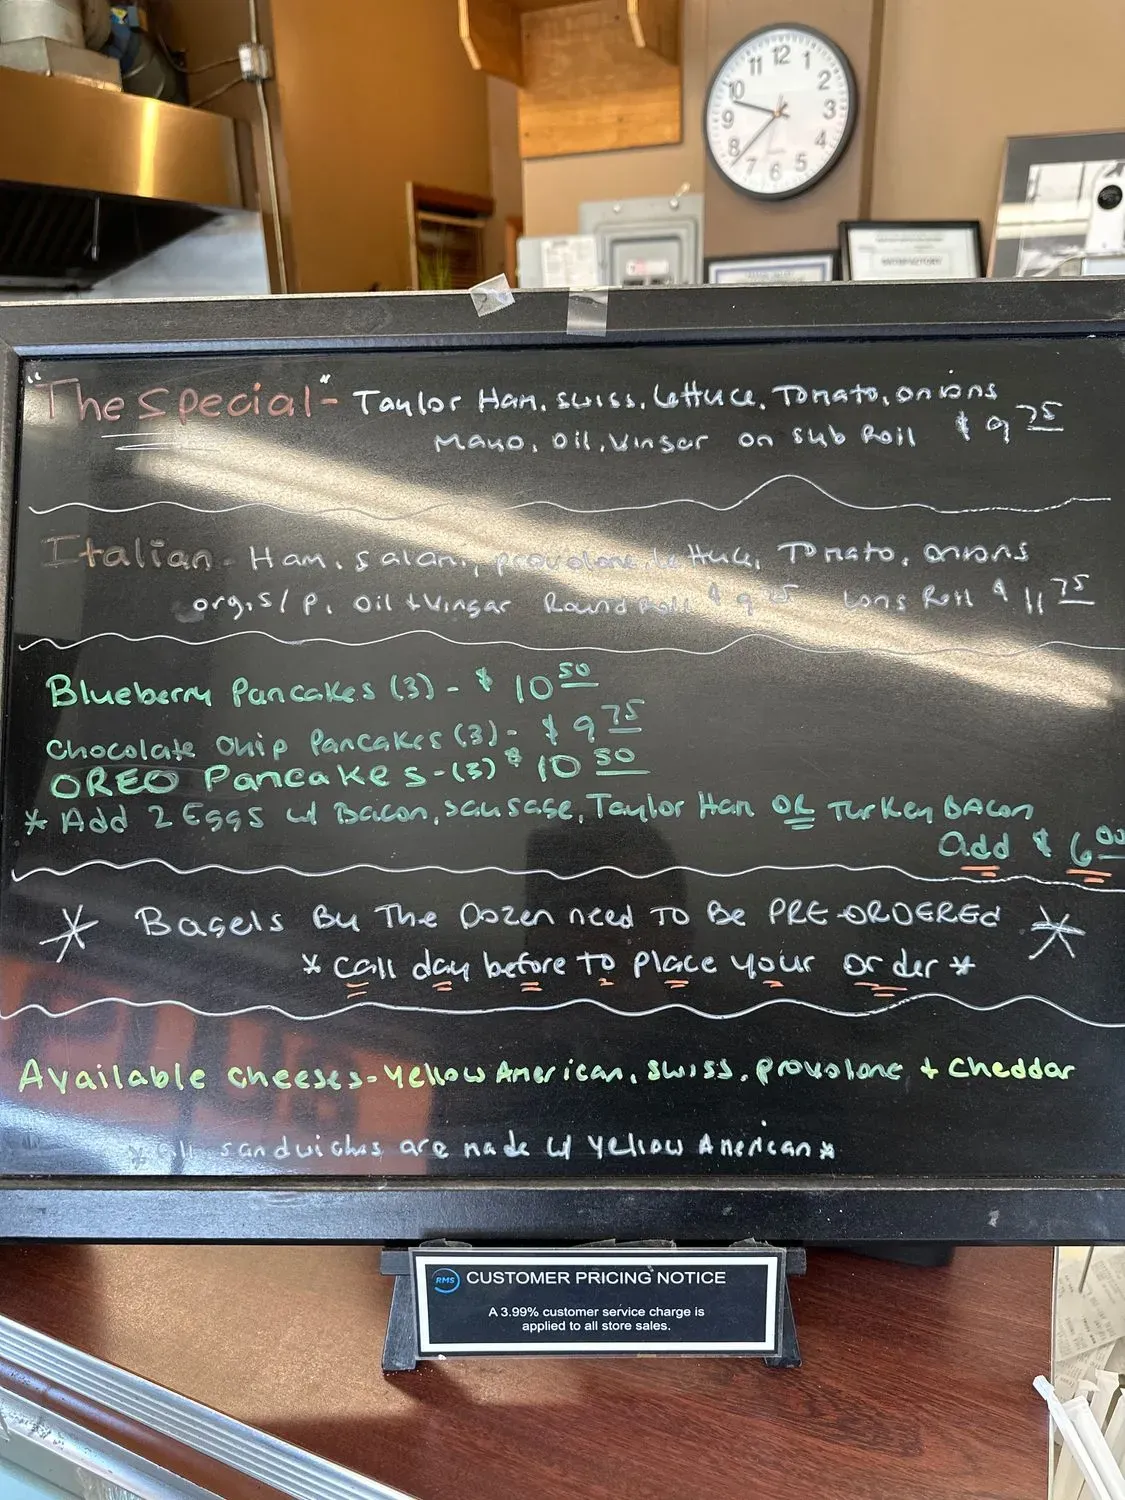 12
1
2
3
4
5
6
7
8
9
10
11
SATISFACTORY
"The Special" - Taylor Ham, swiss, Lettuce, Tomato, onions
Mayo, Oil, Vinegar on Sub Roll $9 75
Italian - Ham, Salami, provolone, lettuce, Tomato, onions
org, S/P, Oil + Vinegar Round Roll $9 25 Long Roll $11 75
Blueberry Pancakes (3) - $10 50
Chocolate Chip Pancakes (3) - $9 75
OREO Pancakes - (3) $10 50
* Add 2 Eggs w/ Bacon, sausage, Taylor Ham OR Turkey BAcon
Add $6 00
* Bagels By The Dozen need TO Be PRE-ORDERED *
* Call day before To Place your Order *
Available cheeses - Yellow American, swiss, provolone + Cheddar
* All sandwiches are made w/ Yellow American *
RMS CUSTOMER PRICING NOTICE
A 3.99% customer service charge is
applied to all store sales.